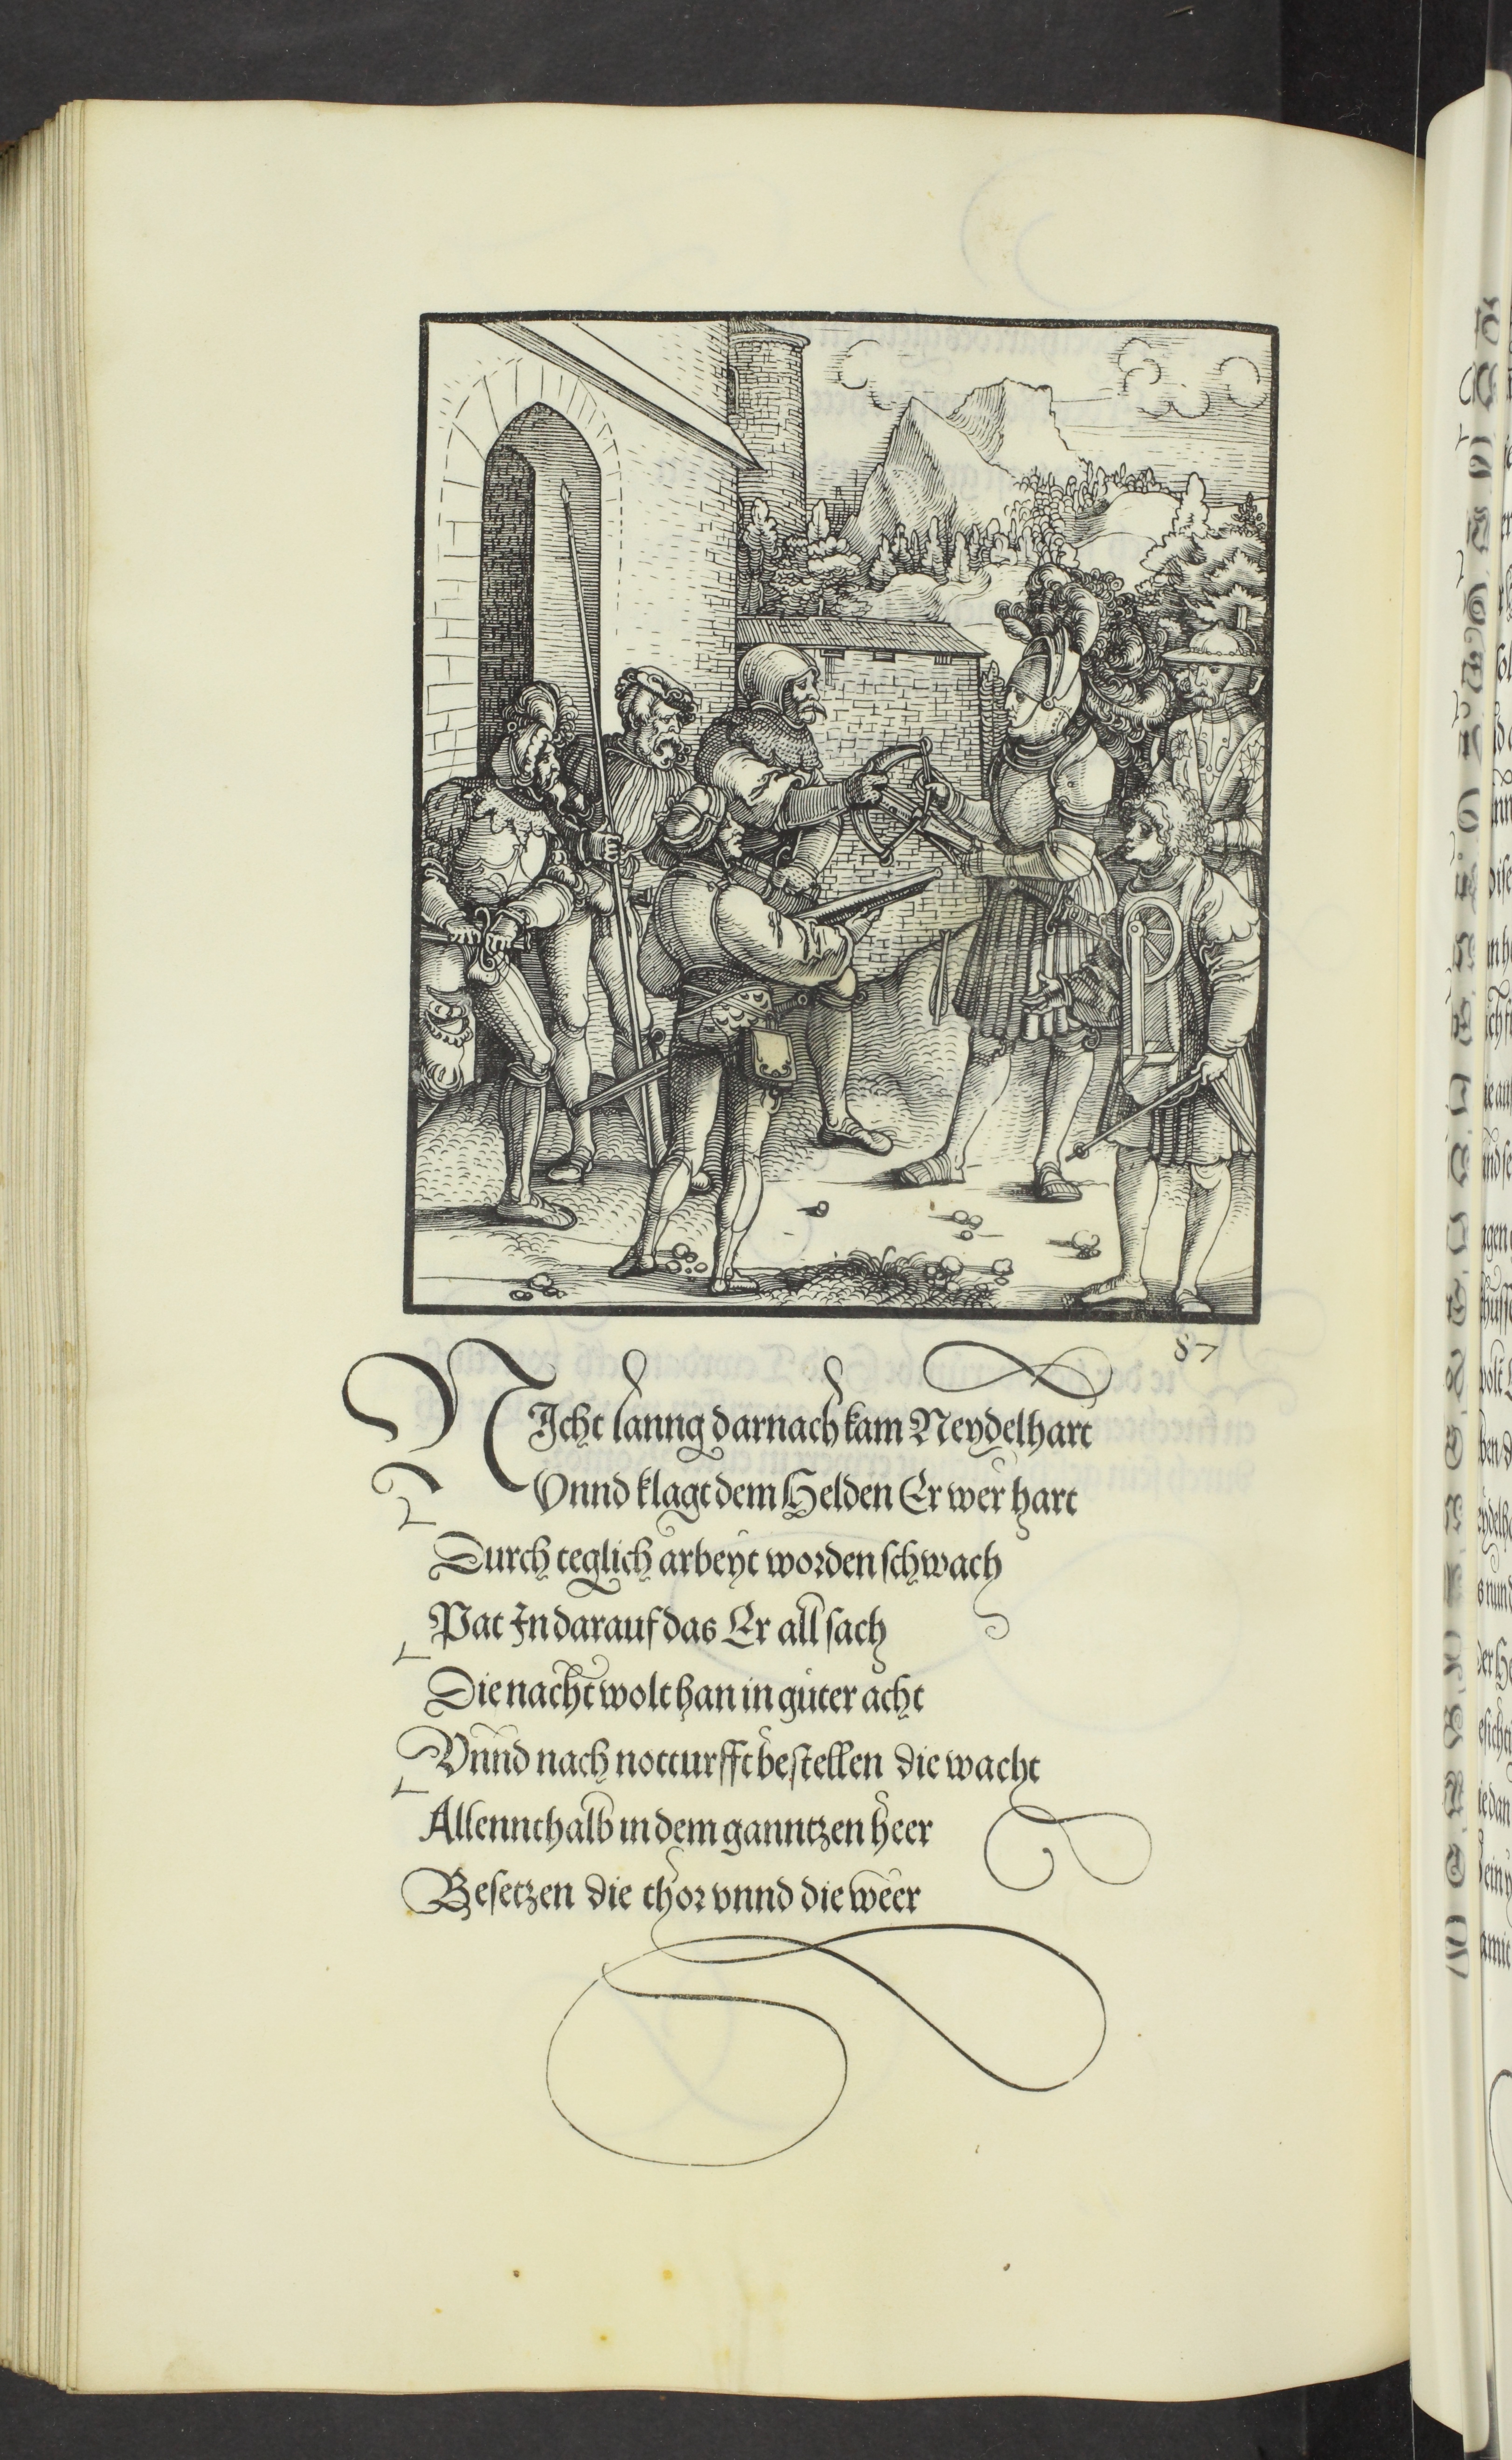 87
NIcht lanng darnach kam Neydelhart
Vnnd klagt dem Helden Er wer hart
Durch teglich arbeyt worden schwach
Pat In darauf das Er all sach
Die nacht wolt han in guter acht
Vnnd nach notturfft bestellen die wacht
Allennthalb in dem ganntzen heer
Besetzen die thor vnnd die weer